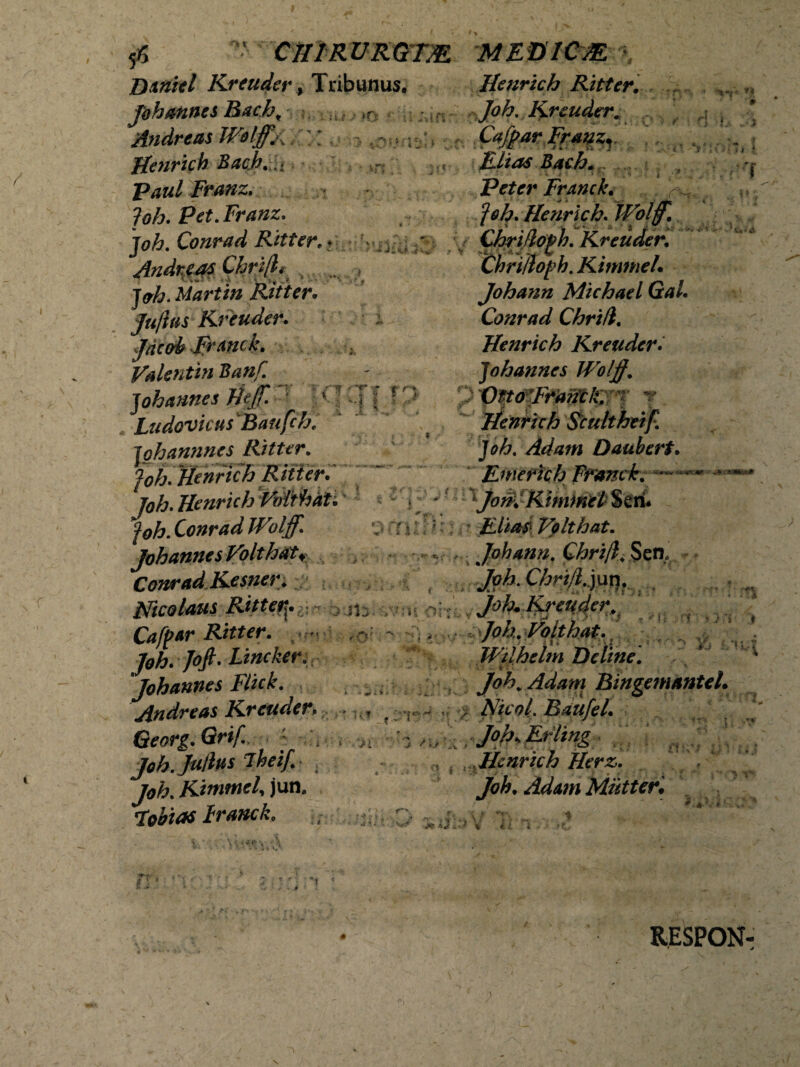 56 CHIRURGIÆ MEDICÆ
Daniel Kreuder, Tribunus.
Johannes Bach.
Andreas Wolff.
Henrich Bach.
Paul Franz.
Joh. Pet. Franz.
Joh. Conrad Ritter.
Andreas Christ.
Joh. Martin Ritter.
Justus Kreuder.
Jacob Franck.
Valentin Banf.
Johannes Heff.
Ludovicus Bausch.
Johannnes Ritter.
Joh. Henrich Ritter.
Joh. Henrich Volthat.
Joh. Conrad Wolff.
Johannes Volthat.
Conrad Kesner.
Nicolaus Ritter.
Caspar Ritter.
Joh. Jost. Lincker.
Johannes Flick.
Andreas Kreuder.
Georg. Gris.
Joh. Justus Theis.
Joh. Kimmel, jun.
Tobias Franck.
Henrich Ritter.
Joh. Kreuder.
Caspar Franz.
Elias Bach.
Peter Franck.
Joh. Henrich. Wolff.
Christoph. Kreuder.
Christoph. Kimmel.
Johann Michael Gal.
Conrad Christ.
Henrich Kreuder.
Johannes Wolff.
Otto Franck.
Henrich Scultheis.
Joh. Adam Daubert.
Emerich Franck.
Joh. Kimmel Sen.
Elias Volthat.
Johann. Christ. Sen.
Joh. Christ. jun.
Joh. Kreuder.
Joh. Volthat.
Wilhelm Deline.
Joh. Adam Bingemantel.
Nicol. Bausel.
Joh. Erling
Henrich Herz.
Joh. Adam Mütter.
RESPON-